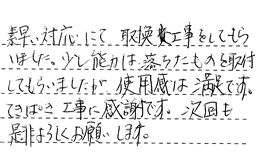 素早い対応にて 取換え工事をしてもら
いました。少し能力は、落ちたものを取付
してもらいましたが 使用感は満足です。
てきぱき工事に感謝です。次回も
是非よろしくお願いします。